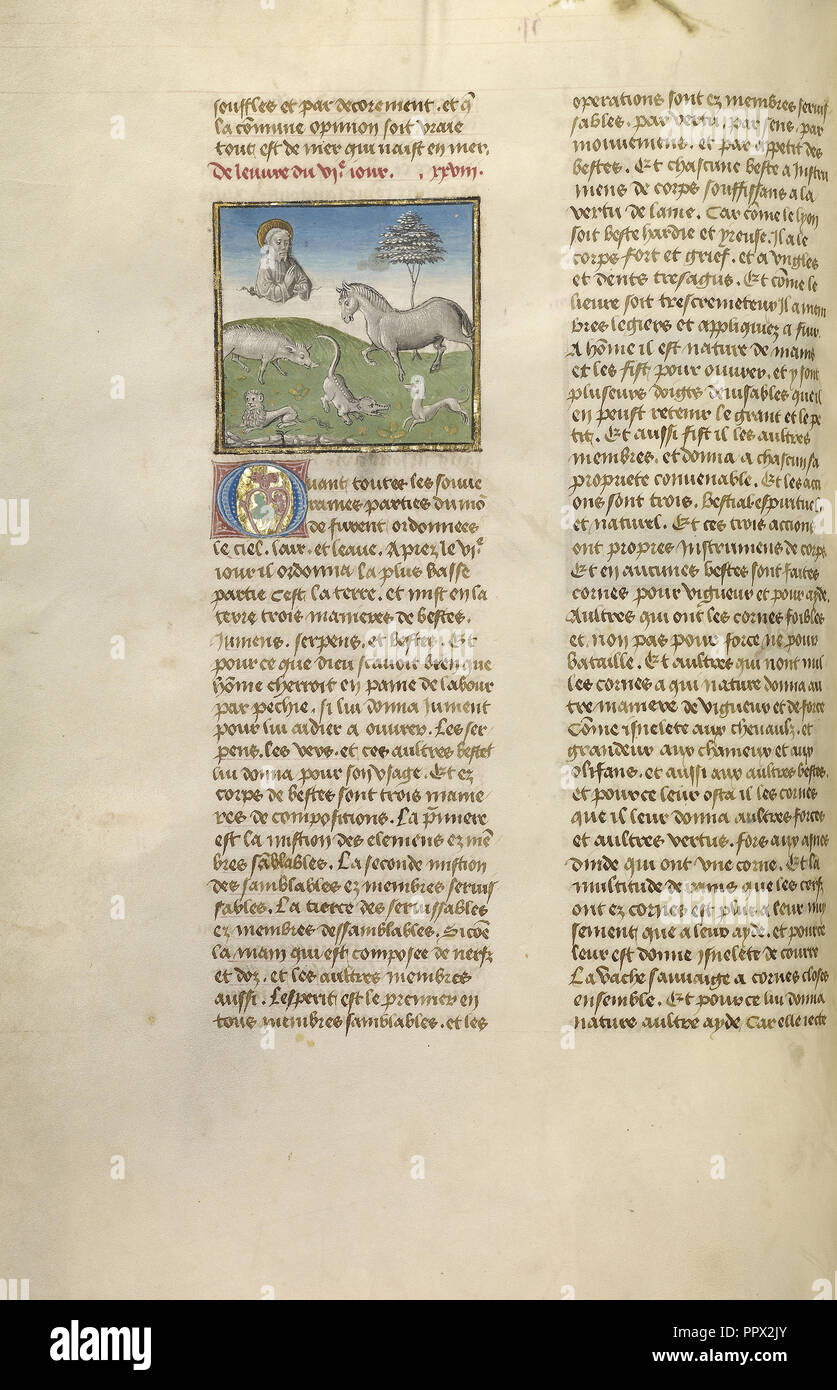 souffles et par decorement. et q̃
la cõmune opinion soit vraie
tout est de mer qui naist en mer.
De leuure du vi.e iour. . xxviii.
Quant toutes les souue
raines parties du mõ
de furent ordonnees
le ciel. lair. et leaue. Aprez le vi.e
iour il ordonna la plus basse
partie Cest la terre. et mist en la
terre trois manieres de bestes.
Jumens. serpens. et bestes. Et
pour ce que dieu scauoit bien que
hõme cherroit en paine de labour
par pechie. si lui donna Jument
pour lui aidier a ouurer. Les ser
pens. les vers. et ces aultres bestes
lui donna pour son vsage. Et ez
corps de bestes sont trois manie
res de compositions. La p̃miere
est la mistion des elemens ez mẽ
bres sãblables. La seconde mistion
des samblables ez membres seruis
sables. La tierce des seruissables
ez membres dessamblables. Sicõe
la main qui est composee de nerfz
et doz. et les aultres membres
aussi. Lesperit est le premier en
tous membres samblables. et les
operations sont ez membres seruis
sables. par vertu. par sens. par
mouuemens. et par appetit des
bestes. Et chascune beste a Instru
mens de corps souffissans a la
vertu de lame. Car cõme le lyon
soit beste hardie et yreuse. Il a le
corps fort et grief. et a vngles
et dents tresagus. Et cõme le
lieure soit trescremeteur Il a mem
bres legiers et appliquiez a fuir.
A hõme il est nature de mains
et les fist pour ouurer. et y sont
pluseurs doigts deuisables queil
en peust retenir le grant et le pe
tit. Et aussi fist il les aultres
membres. et donna a chascun sa
propriete conuenable. Et les acti
ons sont trois. bestial espirituel.
et naturel. Et ces trois actions
ont propres Instrumens de corps
Et en aucunes bestes sont faites
cornes pour vigueur et pour ayde.
Aultres qui ont les cornes foibles
et non pas pour force ne pour
bataille. Et aultres qui nont nul
les cornes a qui nature donna au
tre maniere de vigueur et de force
Cõme isnelete aux cheuaulz. et
grandeur aux chameux et aux
olifans. et aussi aux aultres bestes.
et pour ce leur osta il les cornes
que il leur donna aultres forces
et aultres vertus. fors aux asnes
dinde qui ont vne corne. Et la
multitude de rains que les cerfz
ont ez cornes est plus a leur nuy
sement que a leur ayde. et pour ce
leur est donne isnelete de courre
La vache sauuaige a cornes closes
ensemble. Et pour ce lui donna
nature aultre ayde Car elle iecte
alamy
Image ID: PPX2JY
www.alamy.com